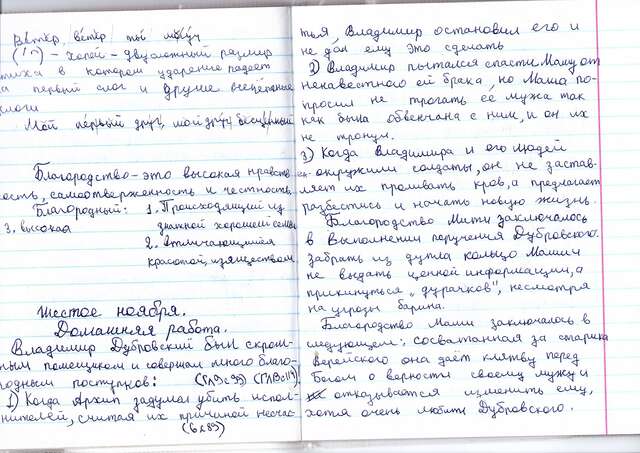 Ветер, ветер ты могуч
(!∩) - хорей - двусложный размер
стиха в котором ударение падает
на первый слог и другие нечётные
слоги
Мой первый друг, мой друг бесценный
Благородство - это высокая нравств
ость, самоотверженность и честность.
Благородный: 1. Происходящий из
3. высокая знатной хорошей семьи
2. Отличающийся
красотой, изяществом
Шестое ноября.
Домашняя работа.
Владимир Дубровский был скром-
ным помещиком и совершал много благо-
родных поступков: (ГЛ
1) Когда Архип задумал убить испол-
нителей, считая их причиной несчас
ться, Владимир остановил его и
не дал ему это сделать
2) Владимир пытался спасти Машу от
ненавестного ей брака, но Маша по-
просил не трогать её мужа так
как была обвенчана с ним, и он их
не тронул.
3) Когда Владимира и его людей
окружили солдаты, он не застав-
ляет их проливать кровь, а предлагает
разбестись и начать новую жизнь.
Благородство Мити заключалось
в выполнении поручения Дубровского.
забрать из дупла кольцо Машич
не выдать ценной информации, а
прикинуться "дурачков", несмотря
на угрозы барина.
Благородство Маши заключалось в
следующем: сосватанная за старика
Верейского она даёт клятву перед
Богом о верности своему мужу и
отказывается изменить ему,
хотя очень любит Дубровского.